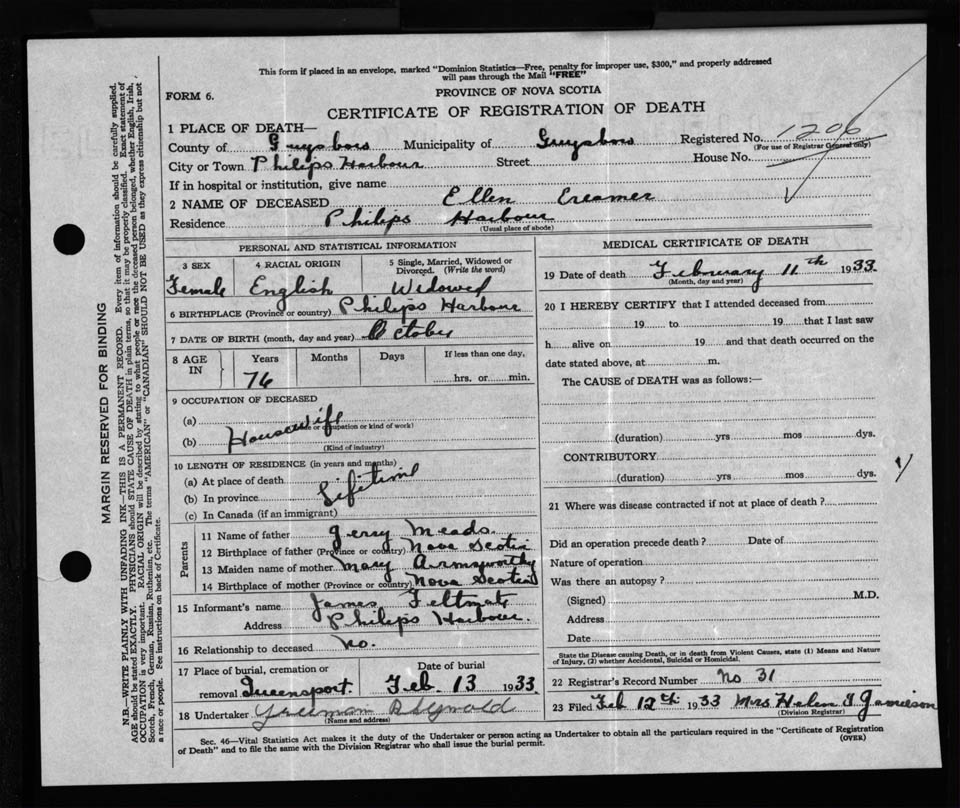 This form if placed in an envelope, marked "Dominion Statistics—Free, penalty for improper use, $300," and properly addressed
will pass through the Mail "FREE"
FORM 6.
PROVINCE OF NOVA SCOTIA
CERTIFICATE OF REGISTRATION OF DEATH
1 PLACE OF DEATH—
County of Guysboro Municipality of Guysboro Registered No. 1206
(For use of Registrar General only)
City or Town Philips Harbour Street House No.
If in hospital or institution, give name
2 NAME OF DECEASED Ellen Creamer
Residence Philips Harbour
(Usual place of abode)
PERSONAL AND STATISTICAL INFORMATION
3 SEX 4 RACIAL ORIGIN 5 Single, Married, Widowed or Divorced. (Write the word)
Female English Widowed
6 BIRTHPLACE (Province or country) Philips Harbour
7 DATE OF BIRTH (month, day and year) October
8 AGE IN Years Months Days If less than one day,
76 hrs. or min.
9 OCCUPATION OF DECEASED
(a)
(Trade or occupation or kind of work)
(b) Housewife
(Kind of industry)
10 LENGTH OF RESIDENCE (in years and months)
(a) At place of death
(b) In province Lifetime
(c) In Canada (if an immigrant)
Parents
11 Name of father Jerry Meads.
12 Birthplace of father (Province or country) Nova Scotia
13 Maiden name of mother Mary Armsworthy
14 Birthplace of mother (Province or country) Nova Scotia
15 Informant's name James Feltmate
Address Philips Harbour.
16 Relationship to deceased No.
17 Place of burial, cremation or Date of burial
removal Queensport. Feb. 13 1933
18 Undertaker Freeman
(Name and address)
MEDICAL CERTIFICATE OF DEATH
19 Date of death February 11th 1933.
(Month, day and year)
20 I HEREBY CERTIFY that I attended deceased from
19 to 19 that I last saw
h alive on 19 and that death occurred on the
date stated above, at m.
The CAUSE of DEATH was as follows:—
(duration) yrs mos dys.
CONTRIBUTORY
(duration) yrs mos dys.
21 Where was disease contracted if not at place of death?
Did an operation precede death? Date of
Nature of operation
Was there an autopsy?
(Signed) M.D.
Address
Date
State the Disease causing Death, or in death from Violent Causes, state (1) Means and Nature
of Injury, (2) whether Accidental, Suicidal or Homicidal.
22 Registrar's Record Number No 31
23 Filed Feb 12th 1933 Mrs Helen J Jamieson
(Division Registrar)
Sec. 46—Vital Statistics Act makes it the duty of the Undertaker or person acting as Undertaker to obtain all the particulars required in the "Certificate of Registration
of Death" and to file the same with the Division Registrar who shall issue the burial permit.
(OVER)
MARGIN RESERVED FOR BINDING
N.B.—WRITE PLAINLY WITH UNFADING INK—THIS IS A PERMANENT RECORD. Every item of information should be carefully supplied.
AGE should be stated EXACTLY. PHYSICIANS should STATE CAUSE OF DEATH in plain terms, so that it may be properly classified. Exact statement of
OCCUPATION is very important. RACIAL ORIGIN will be described by stating to what people or race the deceased person belonged, whether English, Irish,
Scotch, French, German, Russian, Ruthenian, etc. The terms "AMERICAN" or "CANADIAN" SHOULD NOT BE USED as they express citizenship but not
a race or people. See instructions on back of Certificate.